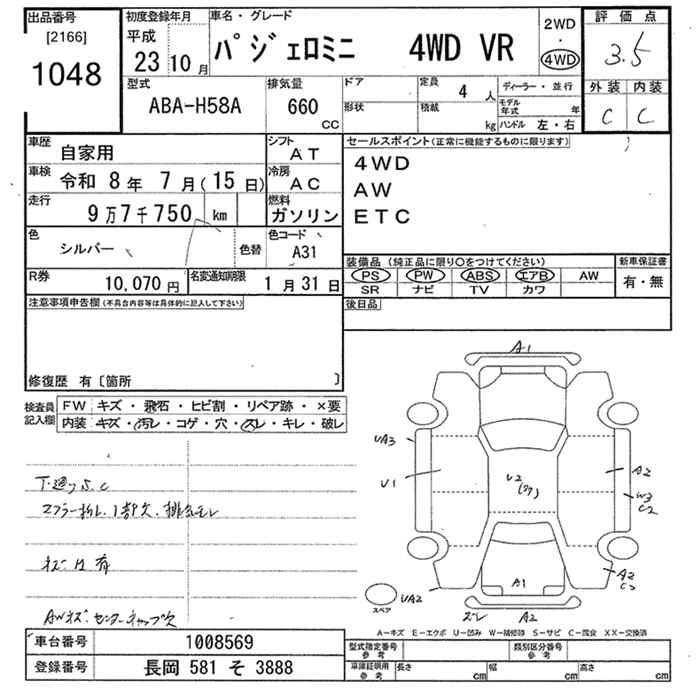 出品番号
[2166]
1048
初度登録年月
平成
23 10 月
車名・グレード
パジェロミニ 4WD VR
2WD
・
4WD
評価点
3.5
外装 内装
C C
型式
ABA-H58A
排気量
660
CC
ドア
形状
定員
4 人
積載
kg
ディーラー・並行
モデル年式 年
ハンドル 左・右
車歴
自家用
シフト
AT
車検
令和 8年 7月(15日)
冷房
AC
走行
9万7千750 km
燃料
ガソリン
色
シルバー
色替
色コード
A31
R券
10,070円
名変通知期限
1月31日
セールスポイント(正常に機能するものに限ります)
4WD
AW
ETC
装備品(純正品に限り○をつけてください)
PS PW ABS エアB AW
SR ナビ TV カワ
新車保証書
有・無
後日品
注意事項申告欄(不具合内容等は具体的に記入して下さい)
修復歴 有〔箇所 〕
検査員記入欄
FW キズ・飛石・ヒビ割・リペア跡・×要
内装 キズ・汚レ・コゲ・穴・スレ・キレ・破レ
下廻りS.C
マフラー折レ、1部欠、排気モレ
ネジ穴有
AWキズ・センターキャップ欠
A1
UA3
U1
U2
A2
W3
C2
A1
A2
C2
UA2
スペア
ズレ A2
A-キズ E-エクボ U-凹み W-補修跡 S-サビ C-腐食 XX-交換済
車台番号 1008569
登録番号 長岡 581 そ 3888
型式指定番号
参考
類別区分番号
参考
車庫証明用
参考
長さ cm 幅 cm 高さ cm